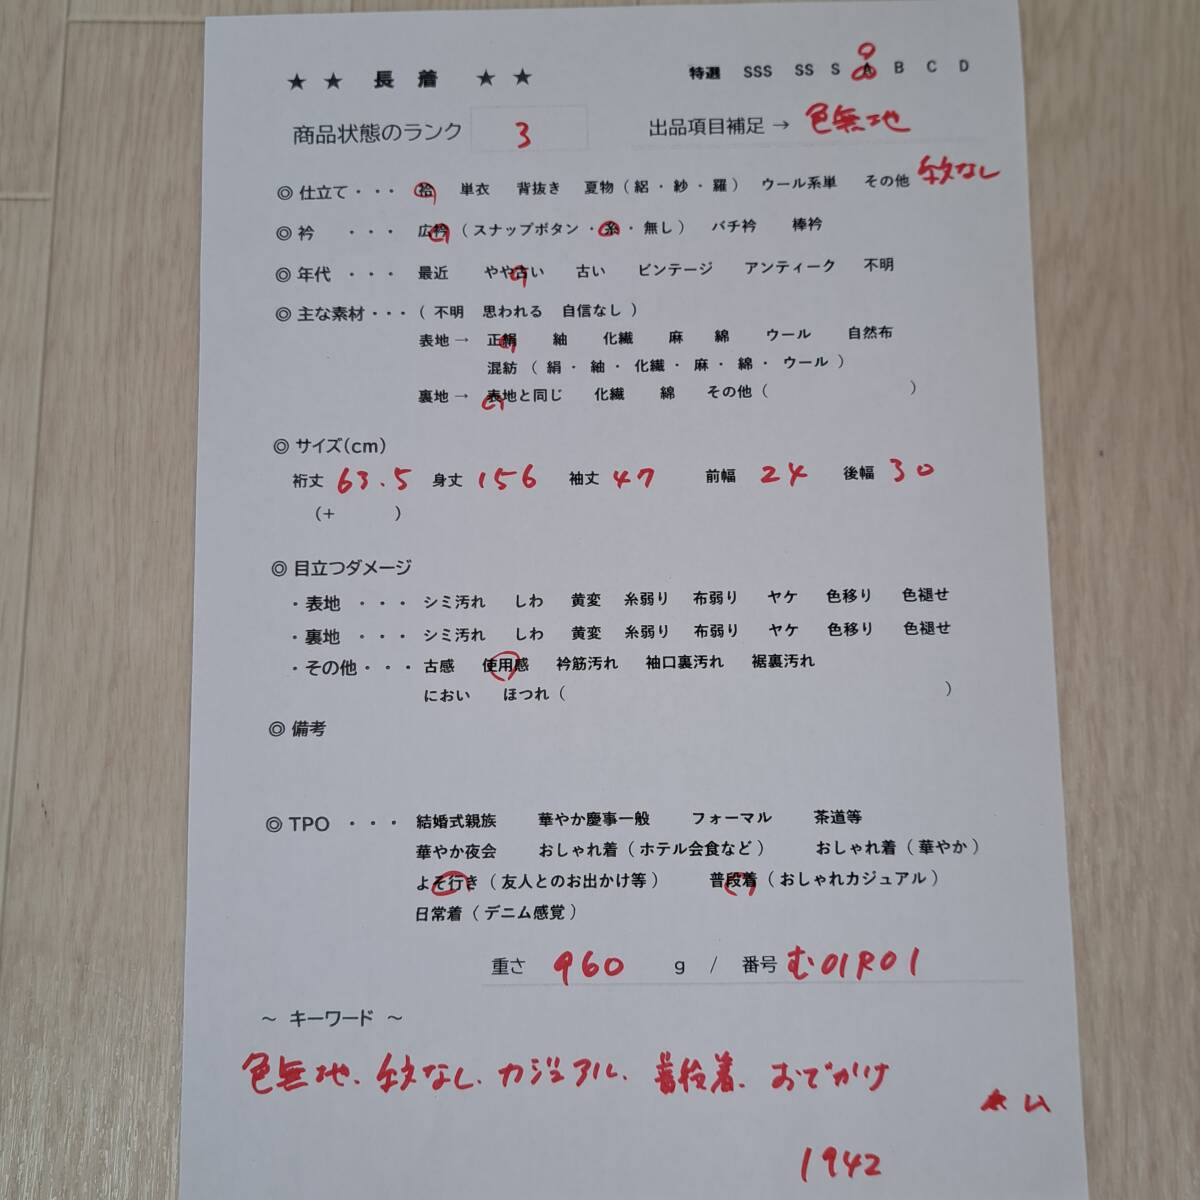 ★ ★ 長 着 ★ ★ 特選 SSS SS S A B C D
商品状態のランク 3 出品項目補足 → 色無地
紋なし
◎ 仕立て ・・・ 袷 単衣 背抜き 夏物 ( 絽 ・ 紗 ・ 羅 ) ウール系単 その他
◎ 衿 ・・・ 広衿 ( スナップボタン ・ 糸 ・ 無し ) バチ衿 棒衿
◎ 年代 ・・・ 最近 やや古い 古い ビンテージ アンティーク 不明
◎ 主な素材 ・・・ ( 不明 思われる 自信なし )
表地 → 正絹 紬 化繊 麻 綿 ウール 自然布
混紡 ( 絹 ・ 紬 ・ 化繊 ・ 麻 ・ 綿 ・ ウール )
裏地 → 表地と同じ 化繊 綿 その他 ( )
◎ サイズ(cm)
裄丈 63.5 身丈 156 袖丈 47 前幅 24 後幅 30
(+ )
◎ 目立つダメージ
・表地 ・・・ シミ汚れ しわ 黄変 糸弱り 布弱り ヤケ 色移り 色褪せ
・裏地 ・・・ シミ汚れ しわ 黄変 糸弱り 布弱り ヤケ 色移り 色褪せ
・その他 ・・・ 古感 使用感 衿筋汚れ 袖口裏汚れ 裾裏汚れ
におい ほつれ ( )
◎ 備考
◎ TPO ・・・ 結婚式親族 華やか慶事一般 フォーマル 茶道等
華やか夜会 おしゃれ着 ( ホテル会食など ) おしゃれ着 ( 華やか )
よそ行き ( 友人とのお出かけ等 ) 普段着 ( おしゃれカジュアル )
日常着 ( デニム感覚 )
重さ 960 g / 番号 む01R01
～ キーワード ～
色無地、紋なし、カジュアル、普段着、おでかけ
1942